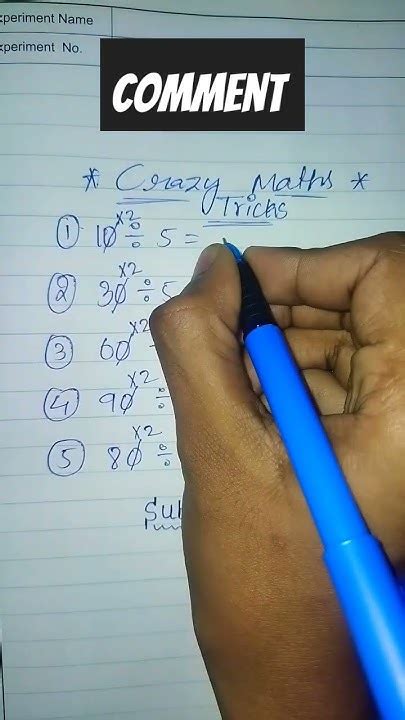 Experiment Name
Experiment No.
COMMENT
* Crazy Maths *
Tricks
① 10^×2 ÷ 5 =
② 30^×2 ÷ 5
③ 60^×2
④ 90^×2 ÷
⑤ 80^×2 ÷
Su